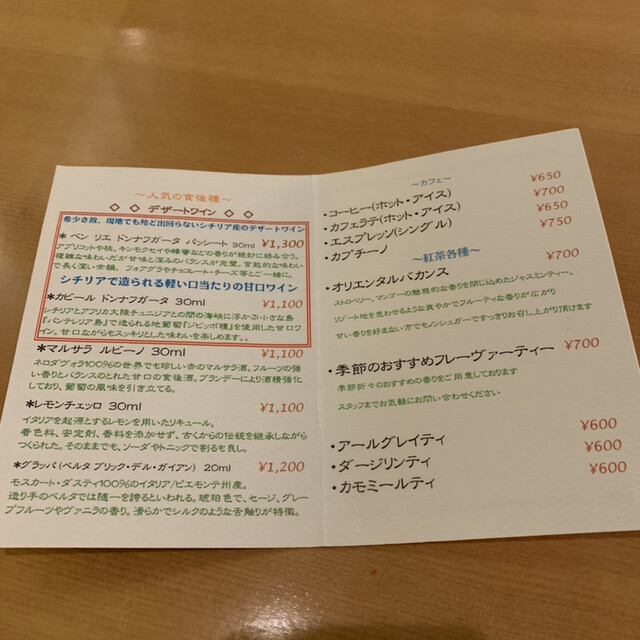 ～人気の食後種～
◇ ◇ デザートワイン ◇ ◇
希少さ故、現地でも殆ど出回らないシチリア産のデザートワイン
＊ ベン リエ ドンナフガータ パッシート 30ml ¥1,300
アプリコットや桃、キンモクセイや蜂蜜などの香りが絶妙に絡み合う。
複雑な味わいだが甘味と深みのバランスが完璧。官能的な味わい
で長く深い余韻。 フォアグラやチョコレート・チーズ等とご一緒に。
シチリアで造られる軽い口当たりの甘口ワイン
＊カビール ドンナフガータ 30ml ¥1,100
シチリアとアフリカ大陸チュニジアとの間の海峡に浮かぶ小さな島
『パンテレリア島』で造られる地葡萄『ジビッボ種』を使用した甘口ワ
イン。甘口ながらもスッキリとした味わいを楽しめます。。
＊マルサラ ルビーノ 30ml ¥1,100
ネロダヴォラ100%の世界でも珍しい赤のマルサラ酒。フルーツの強
い香りとバランスのとれた甘口の食後酒。ブランデーにより酒精強化
しており、葡萄の風味を引き立てる。
＊レモンチェッロ 30ml ¥1,100
イタリアを起源とするレモンを用いたリキュール。
着色料、安定剤、香料を添加せず、古くからの伝統を継承しながら
つくられた。そのままでも、ソーダやトニックで割るも良し。
＊グラッパ（ベルタ ブリック・デル・ガイアン） 20ml ¥1,200
モスカート・ダスティ100%のイタリア/ピエモンテ州産。
造り手のベルタでは随一を誇るといわれる。琥珀色で、セージ、グレー
プフルーツやヴァニラの香り。滑らかでシルクのような舌触りが特徴。
～カフェ～
・コーヒー(ホット・アイス) ¥650
・カフェラテ(ホット・アイス) ¥700
・エスプレッソ(シングル) ¥650
・カプチーノ ¥750
～紅茶各種～
・オリエンタルバカンス ¥700
ストロベリー、マンゴーの魅惑的な香りを閉じ込めたジャスミンティー。
リゾート地を思わせるような爽やかでフルーティな香りが広がり
甘い香りを好まない方でもノンシュガーですっきりお召し上がり頂けます
・季節のおすすめフレーヴァーティー ¥700
季節折々のおすすめの香りをご用意しております
スタッフまでお気軽にお問い合わせください
・アールグレイティ ¥600
・ダージリンティ ¥600
・カモミールティ ¥600